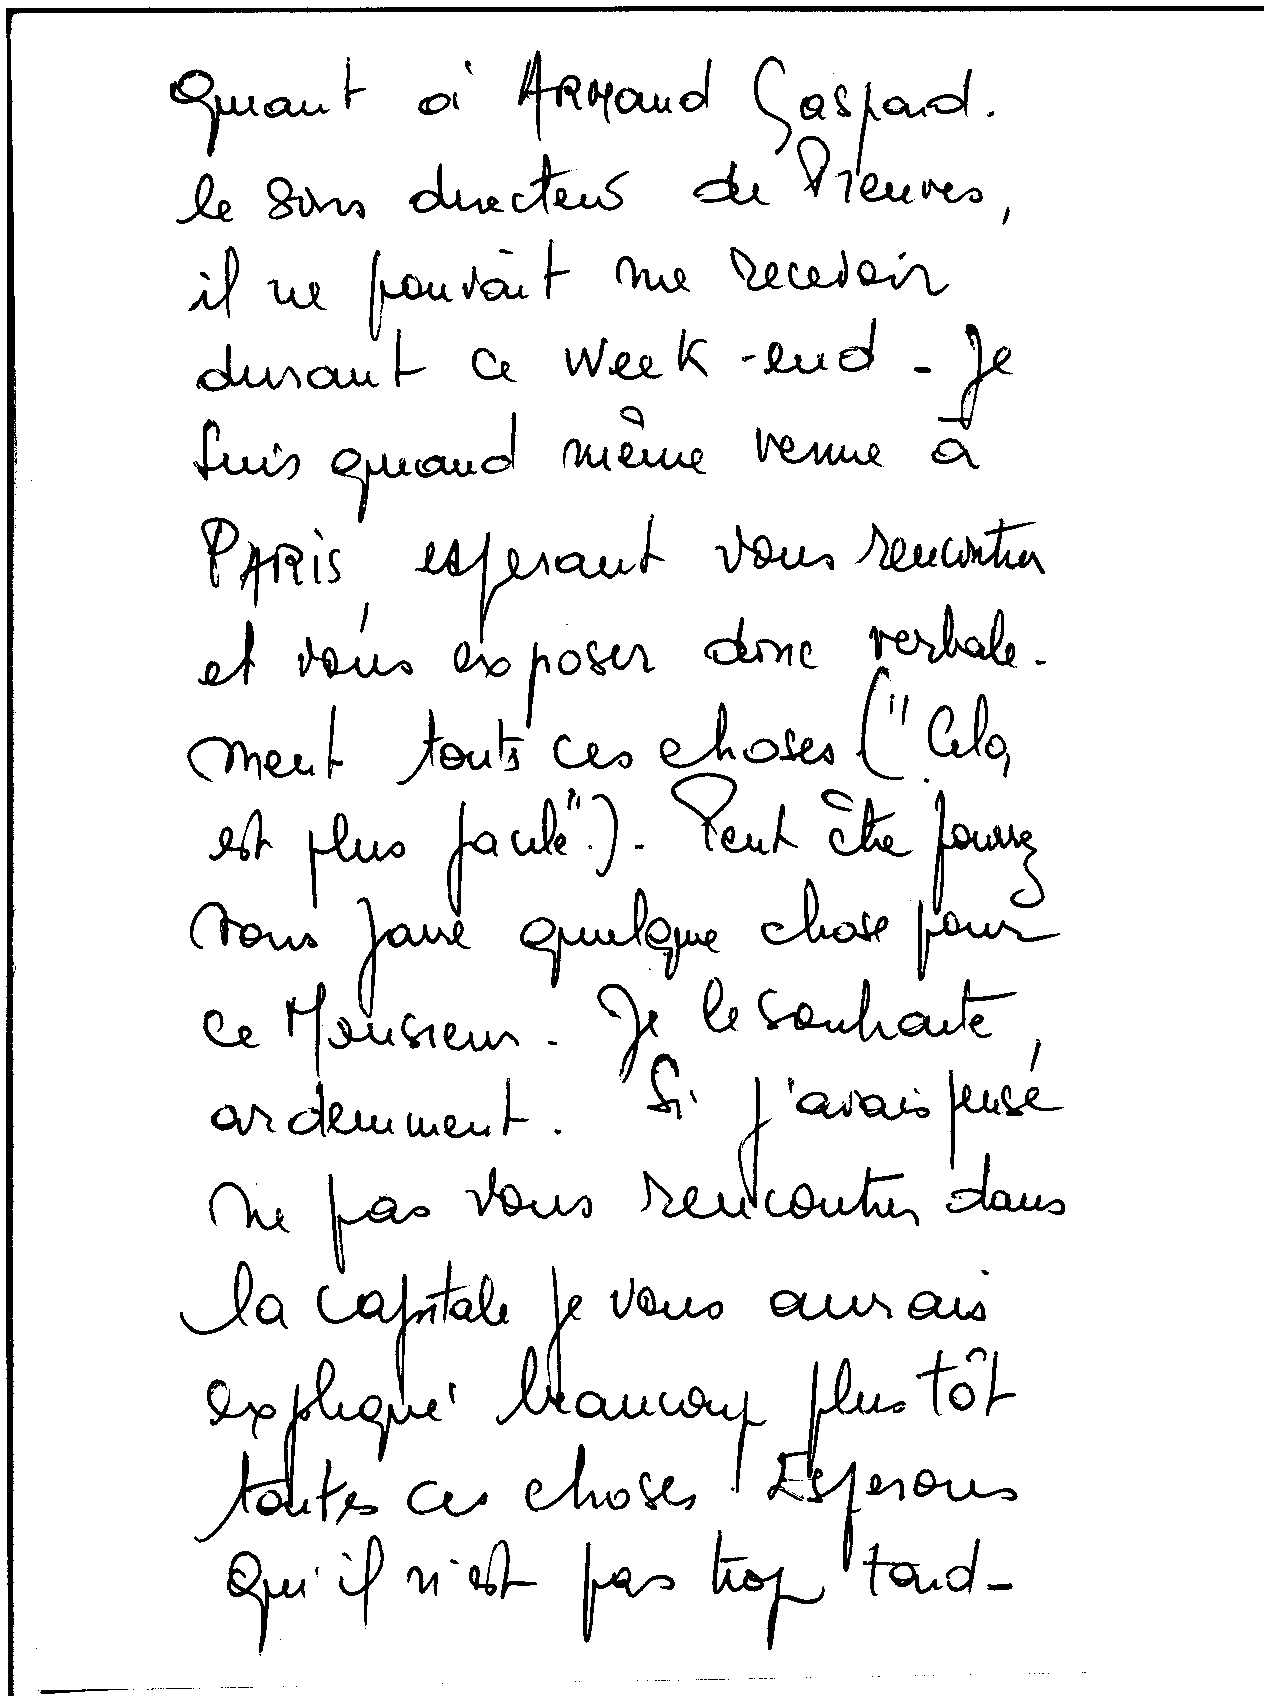 Quant à ARMand Gaspard.
le sous directeur de Preuves,
il ne pouvait me recevoir
durant ce week-end - Je
suis quand même venue à
PARIS, esperant vous rencontrer
et vous exposer donc verbale-
ment toutes ces choses ("Cela
est plus facile".). Peut être pourrez
vous faire quelque chose pour
ce Monsieur. Je le souhaite,
ardemment. Si j'avais pensé
ne pas vous rencontrer dans
la capitale je vous aurais
expliqué beaucoup plus tôt
toutes ces choses. Esperons
qu'il n'est pas trop tard-